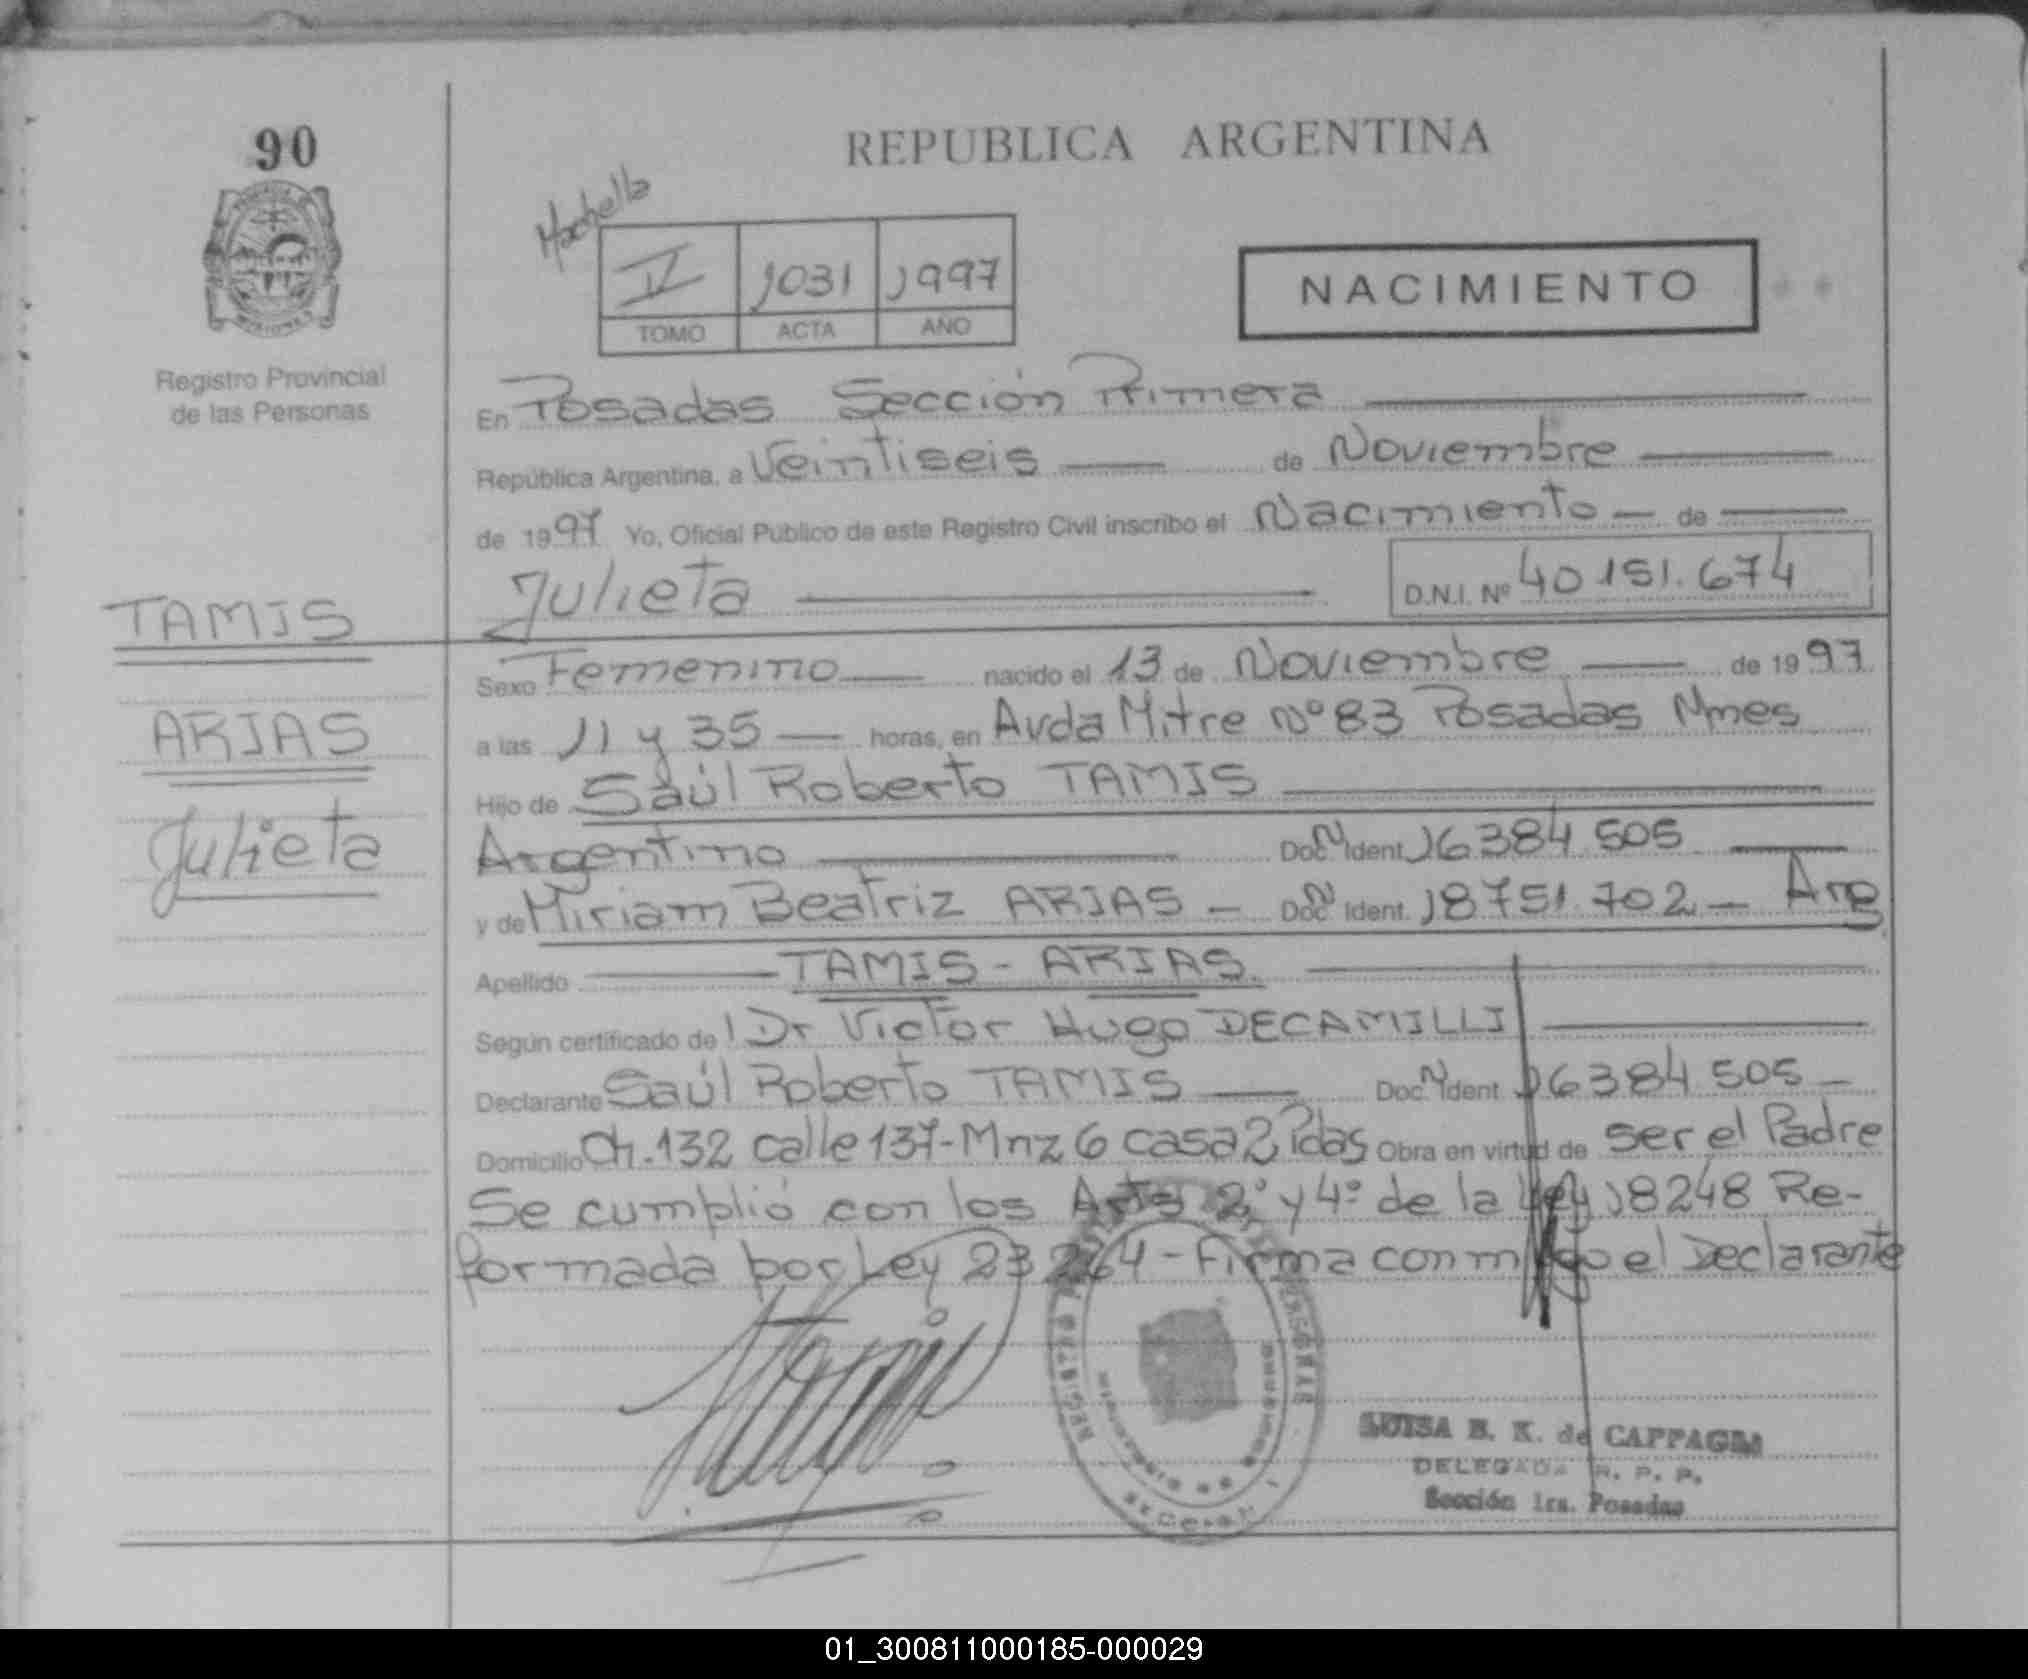 90
REPUBLICA ARGENTINA
IV 1031 1997
TOMO ACTA AÑO
NACIMIENTO
Registro Provincial
de las Personas
En Posadas Sección Primera
República Argentina, a Veintiseis de Noviembre
de 1997 Yo, Oficial Público de este Registro Civil inscribo el Nacimiento de
Julieta D.N.I. Nº 40 151.674
TAMIS
Sexo Femenino nacido el 13 de Noviembre de 1997
ARIAS
a las 11 y 35 horas, en Avda Mitre Nº 83 Posadas Mnes
Hijo de Saúl Roberto TAMIS
Julieta
Argentino Doc N Ident 16384 505
y de Miriam Beatriz ARIAS - Doc N Ident. 18751.702 - Arg
Apellido TAMIS - ARIAS.
Según certificado de Dr Victor Hugo DECAMILLI
Declarante Saúl Roberto TAMIS Doc N Ident 16384 505 -
Domicilio Ch. 132 calle 137-Mnz 6 casa 2 Pdas Obra en virtud de ser el Padre
Se cumplió con los Arts 2º y 4º de la Ley 18248 Re-
formada por Ley 23264 - Firma conmigo el Declarante
LUISA B. K. de
DELEGADA R. P. P.
Sección 1ra. Posadas
01_300811000185-000029